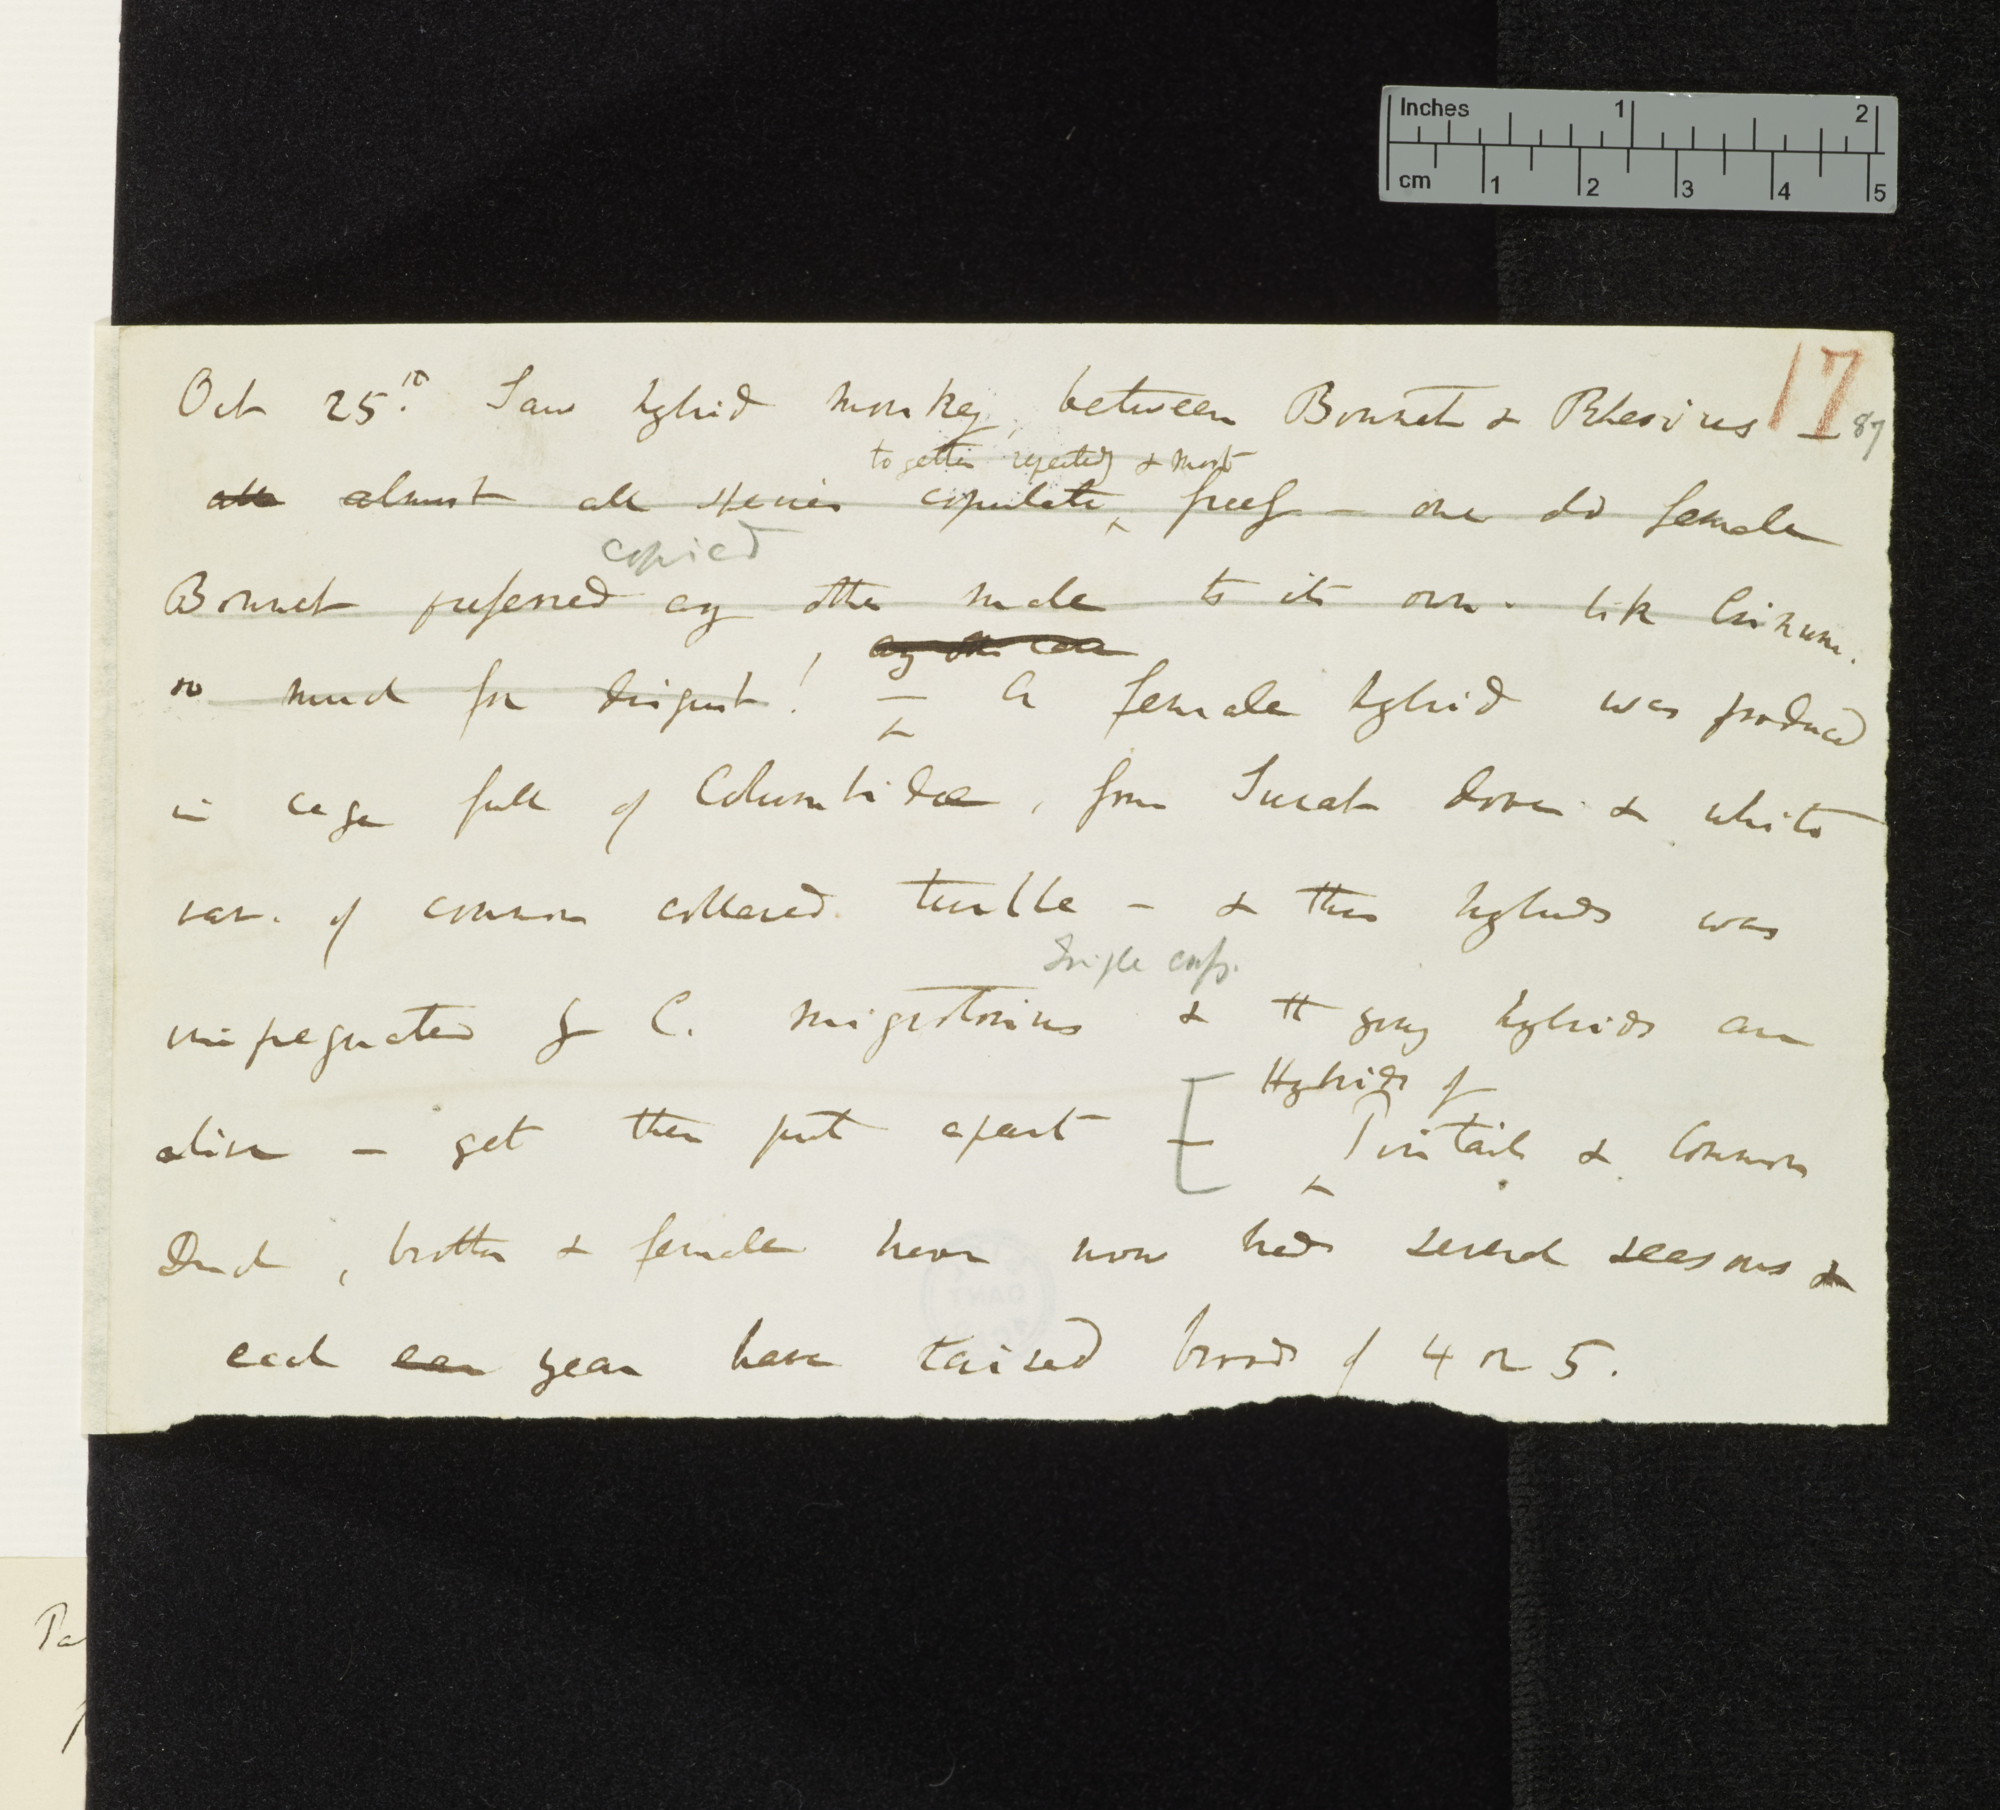 Inches 1 2
cm 1 2 3 4 5
17
87
Oct 25th. Saw hybrid monkey, between Bonnet & Rhesius —
together repeatedly & most
all almost all species copulate freely — one old female
copied
Bonnet preferred any other male to its own. like Crinum.
any other case
so much for disgust! — A female hybrid was produced
in cage full of Columbidae, from Surat dove & white
var. of common collared turtle — & this hybrid was
Triple cross.
impregnated by C. migratorius & the young hybrids are
Hybrids of
alive — get them put apart — [ Pintail & Common
Duck, brother & female have now had several seasons &
each year have raised broods of 4 or 5.
Pa